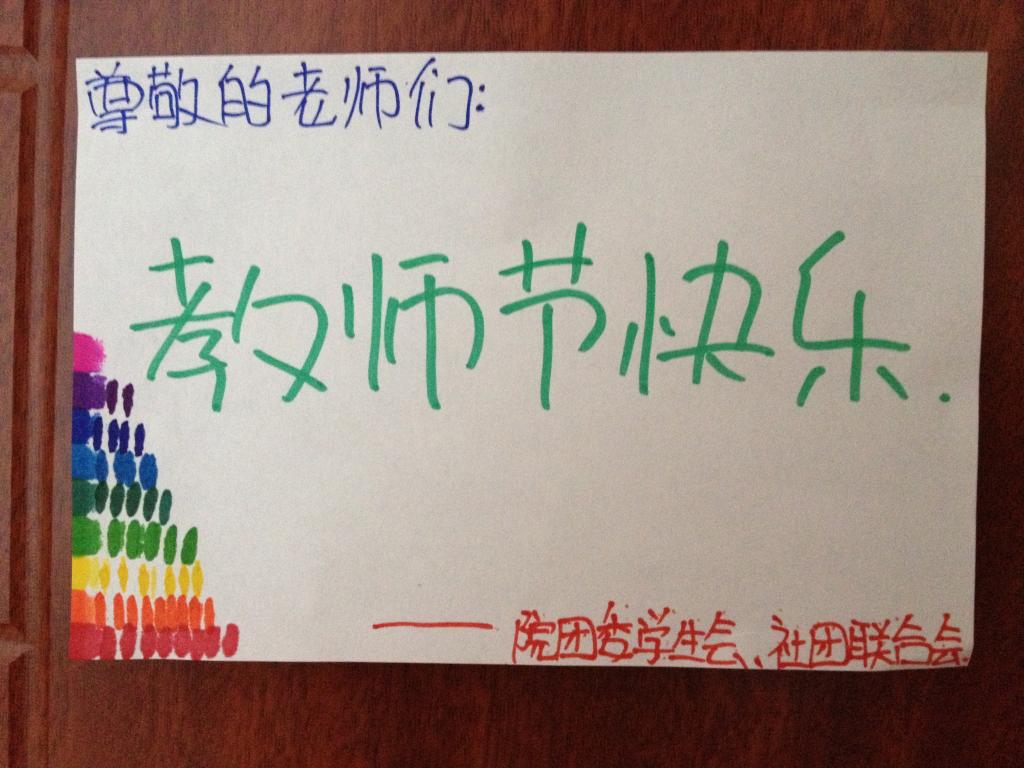 尊敬的老师们:
教师节快乐.
——院团委学生会、社团联合会.